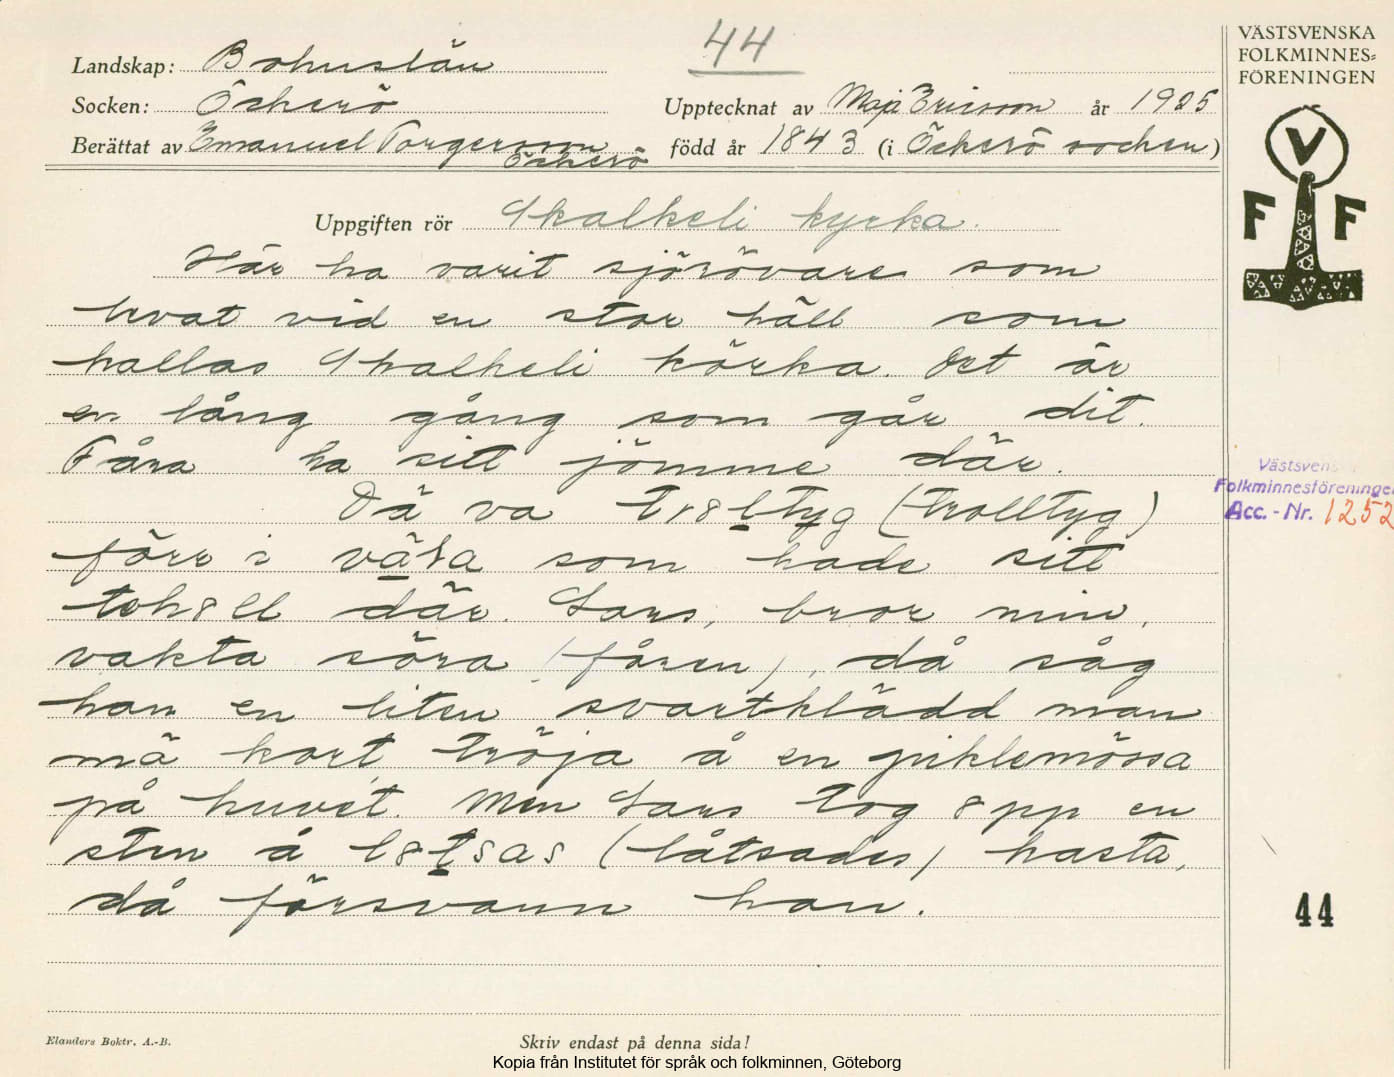 44
VÄSTSVENSKA
FOLKMINNES=
FÖRENINGEN
Landskap: Bohuslän
Socken: Öckerö
Upptecknat av Maja Ericsson år 1925
Berättat av Emanuel Torgersson Öckerö
född år 1843 (i Öckerö socken)
V
F F
Uppgiften rör Skalkeli kyrka.
Här ha varit sjörövare som
hvat vid en stor häll som
kallas Skalkeli körka. Det är
en lång gång som går dit.
Fåra ha sitt jömme där.
Dä va tr8ltyg (trolltyg)
förr i väla som hade sitt
tehåll där. Lars, bror min,
vakta söra (fåren), då såg
han en liten svartklädd man
mä kort tröja å en piklemössa
på huvet. Men Lars tog 8pp en
sten å l8tsas (låtsades) kasta,
då försvann han.
Västsvens
Folkminnesföreningen
Acc.-Nr. 1252
44
Elanders Boktr. A.-B.
Skriv endast på denna sida!
Kopia från Institutet för språk och folkminnen, Göteborg